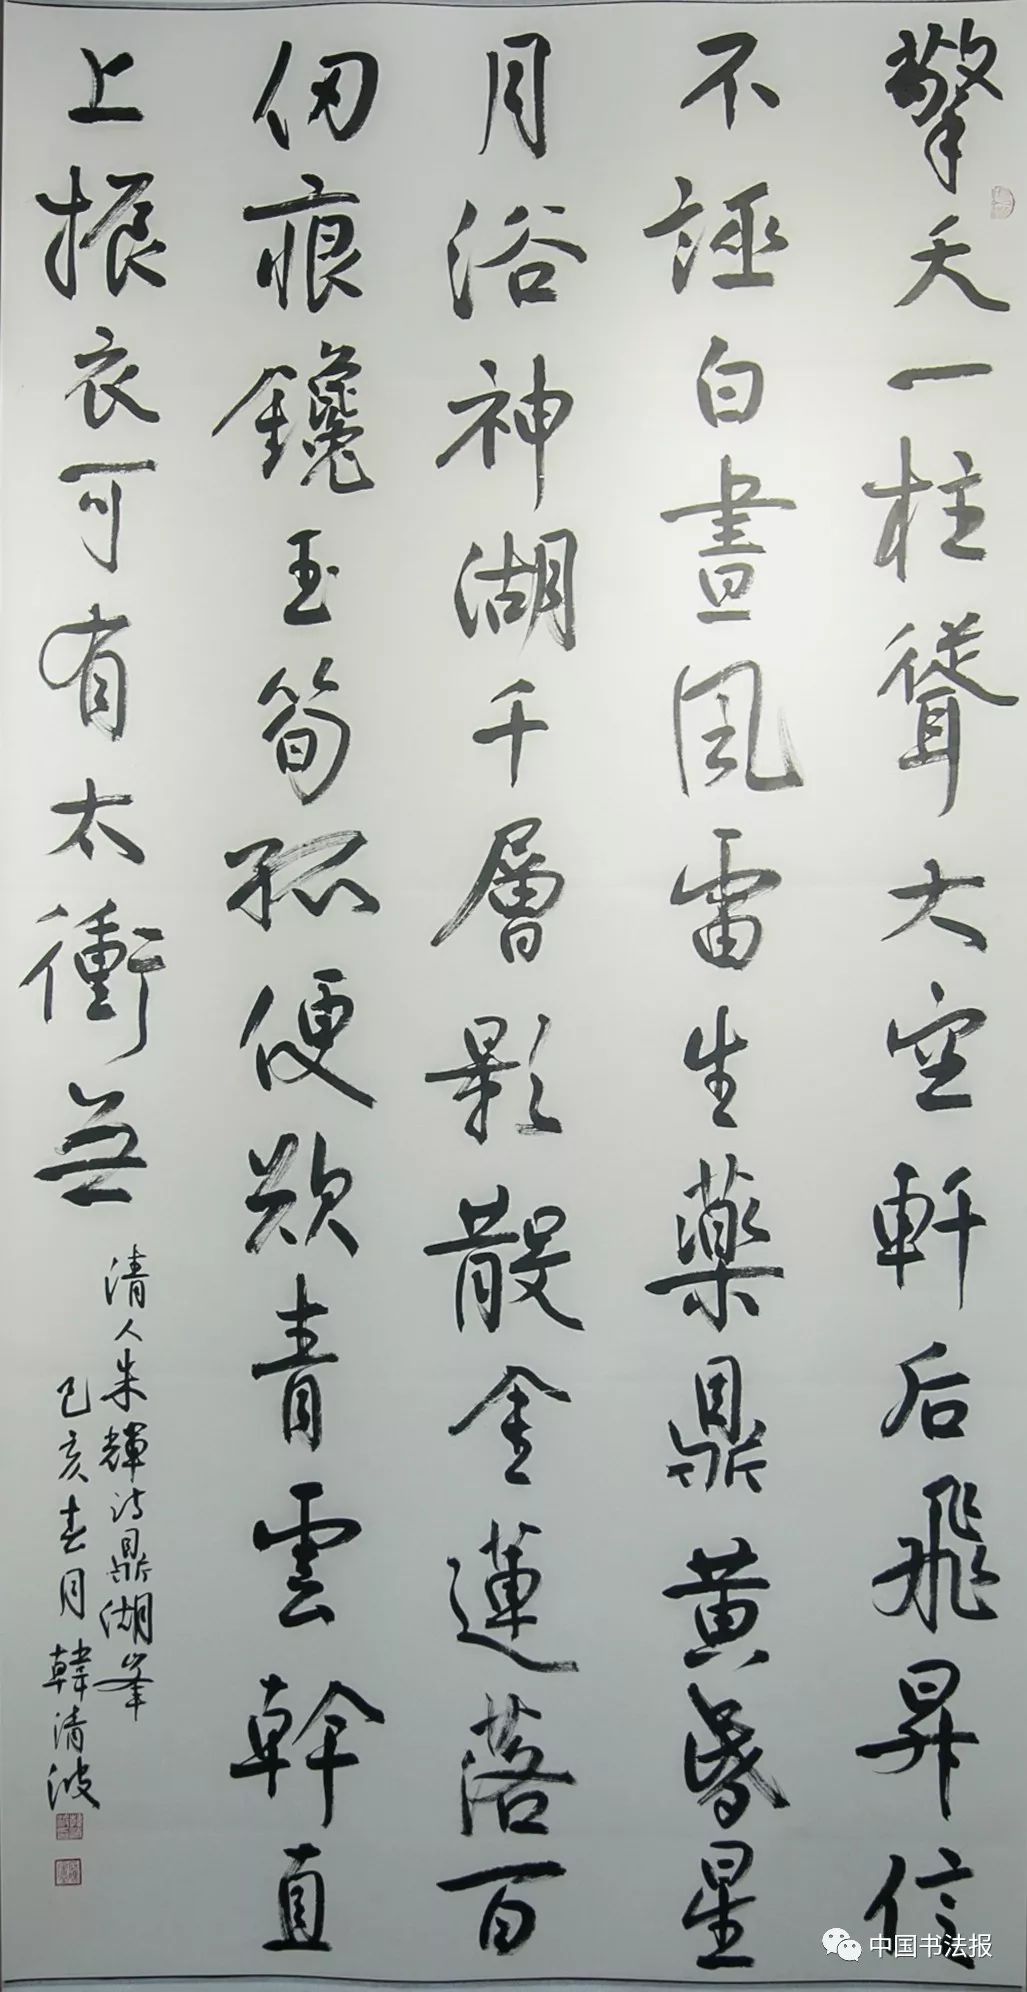 擎天一柱聳大空軒后飛昇信
不誣白晝風雷生藥鼎黄昬星
月浴神湖千層影散金蓮落百
仞痕鑱玉筍孤便欲青雲幹直
上振衣可有太衝無
清人朱輝詩鼎湖峯
己亥春月韓清波
中国书法报